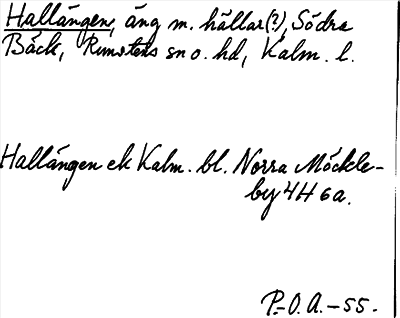 Hallängen, äng m. hällar(?), Södra
Bäck, Runstens sn o. hd, Kalm. l.
Hallängen ek Kalm. bl. Norra Möckle-
by 4H 6a.
P.-O.A.-55.